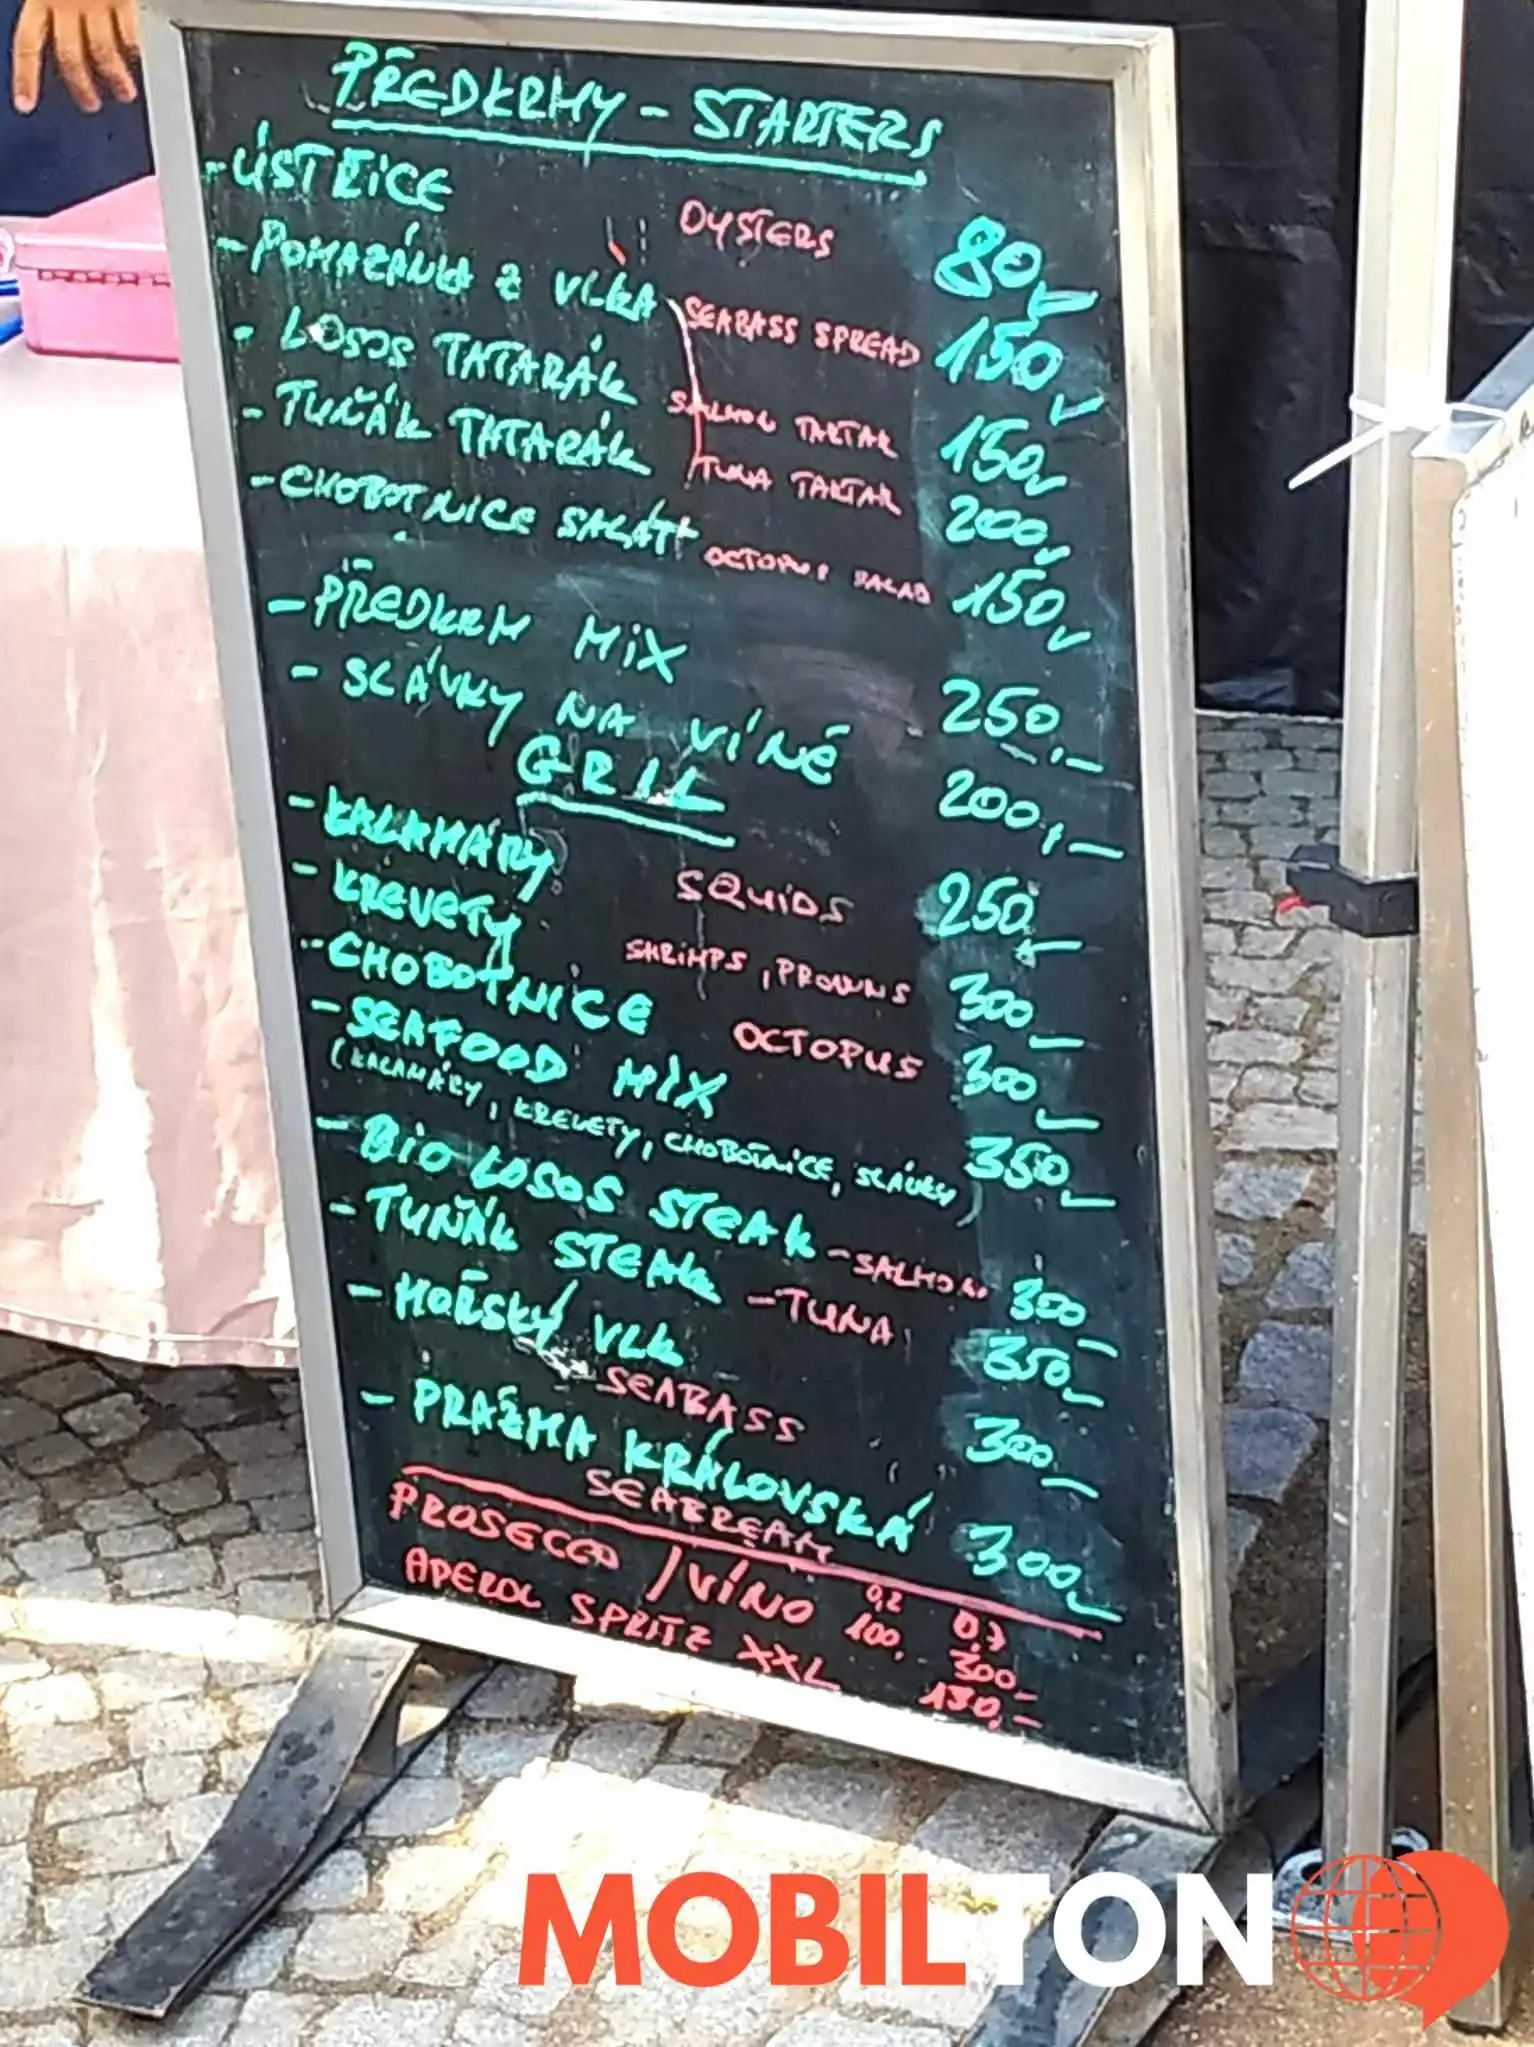 PŘEDKRMY - STARTERS
- ÚSTŘICE OYSTERS 80,-
- POMAZÁNKA Z VLKA SEABASS SPREAD 150,-
- LOSOS TATARÁK SALMON TARTAR 150,-
- TUŇÁK TATARÁK TUNA TARTAR 200,-
- CHOBOTNICE SALÁT OCTOPUS SALAD 150,-
- PŘEDKRM MIX 250,-
- SLÁVKY NA VÍNĚ 200,-
GRIL
- KALAMÁRY SQUIDS 250,-
- KREVETY SHRIMPS, PROWNS 300,-
- CHOBOTNICE OCTOPUS 300,-
- SEAFOOD MIX 350,-
(KALAMÁRY, KREVETY, CHOBOTNICE, SLÁVKY)
- BIO LOSOS STEAK - SALMON 300,-
- TUŇÁK STEAK - TUNA 350,-
- MOŘSKÝ VLK 300,-
SEABASS
- PRAŽMA KRÁLOVSKÁ 300,-
SEABREAM
0,2 0,7
PROSECCO / VÍNO 100,- 300,-
APEROL SPRITZ XXL 130,-
MOBILTON